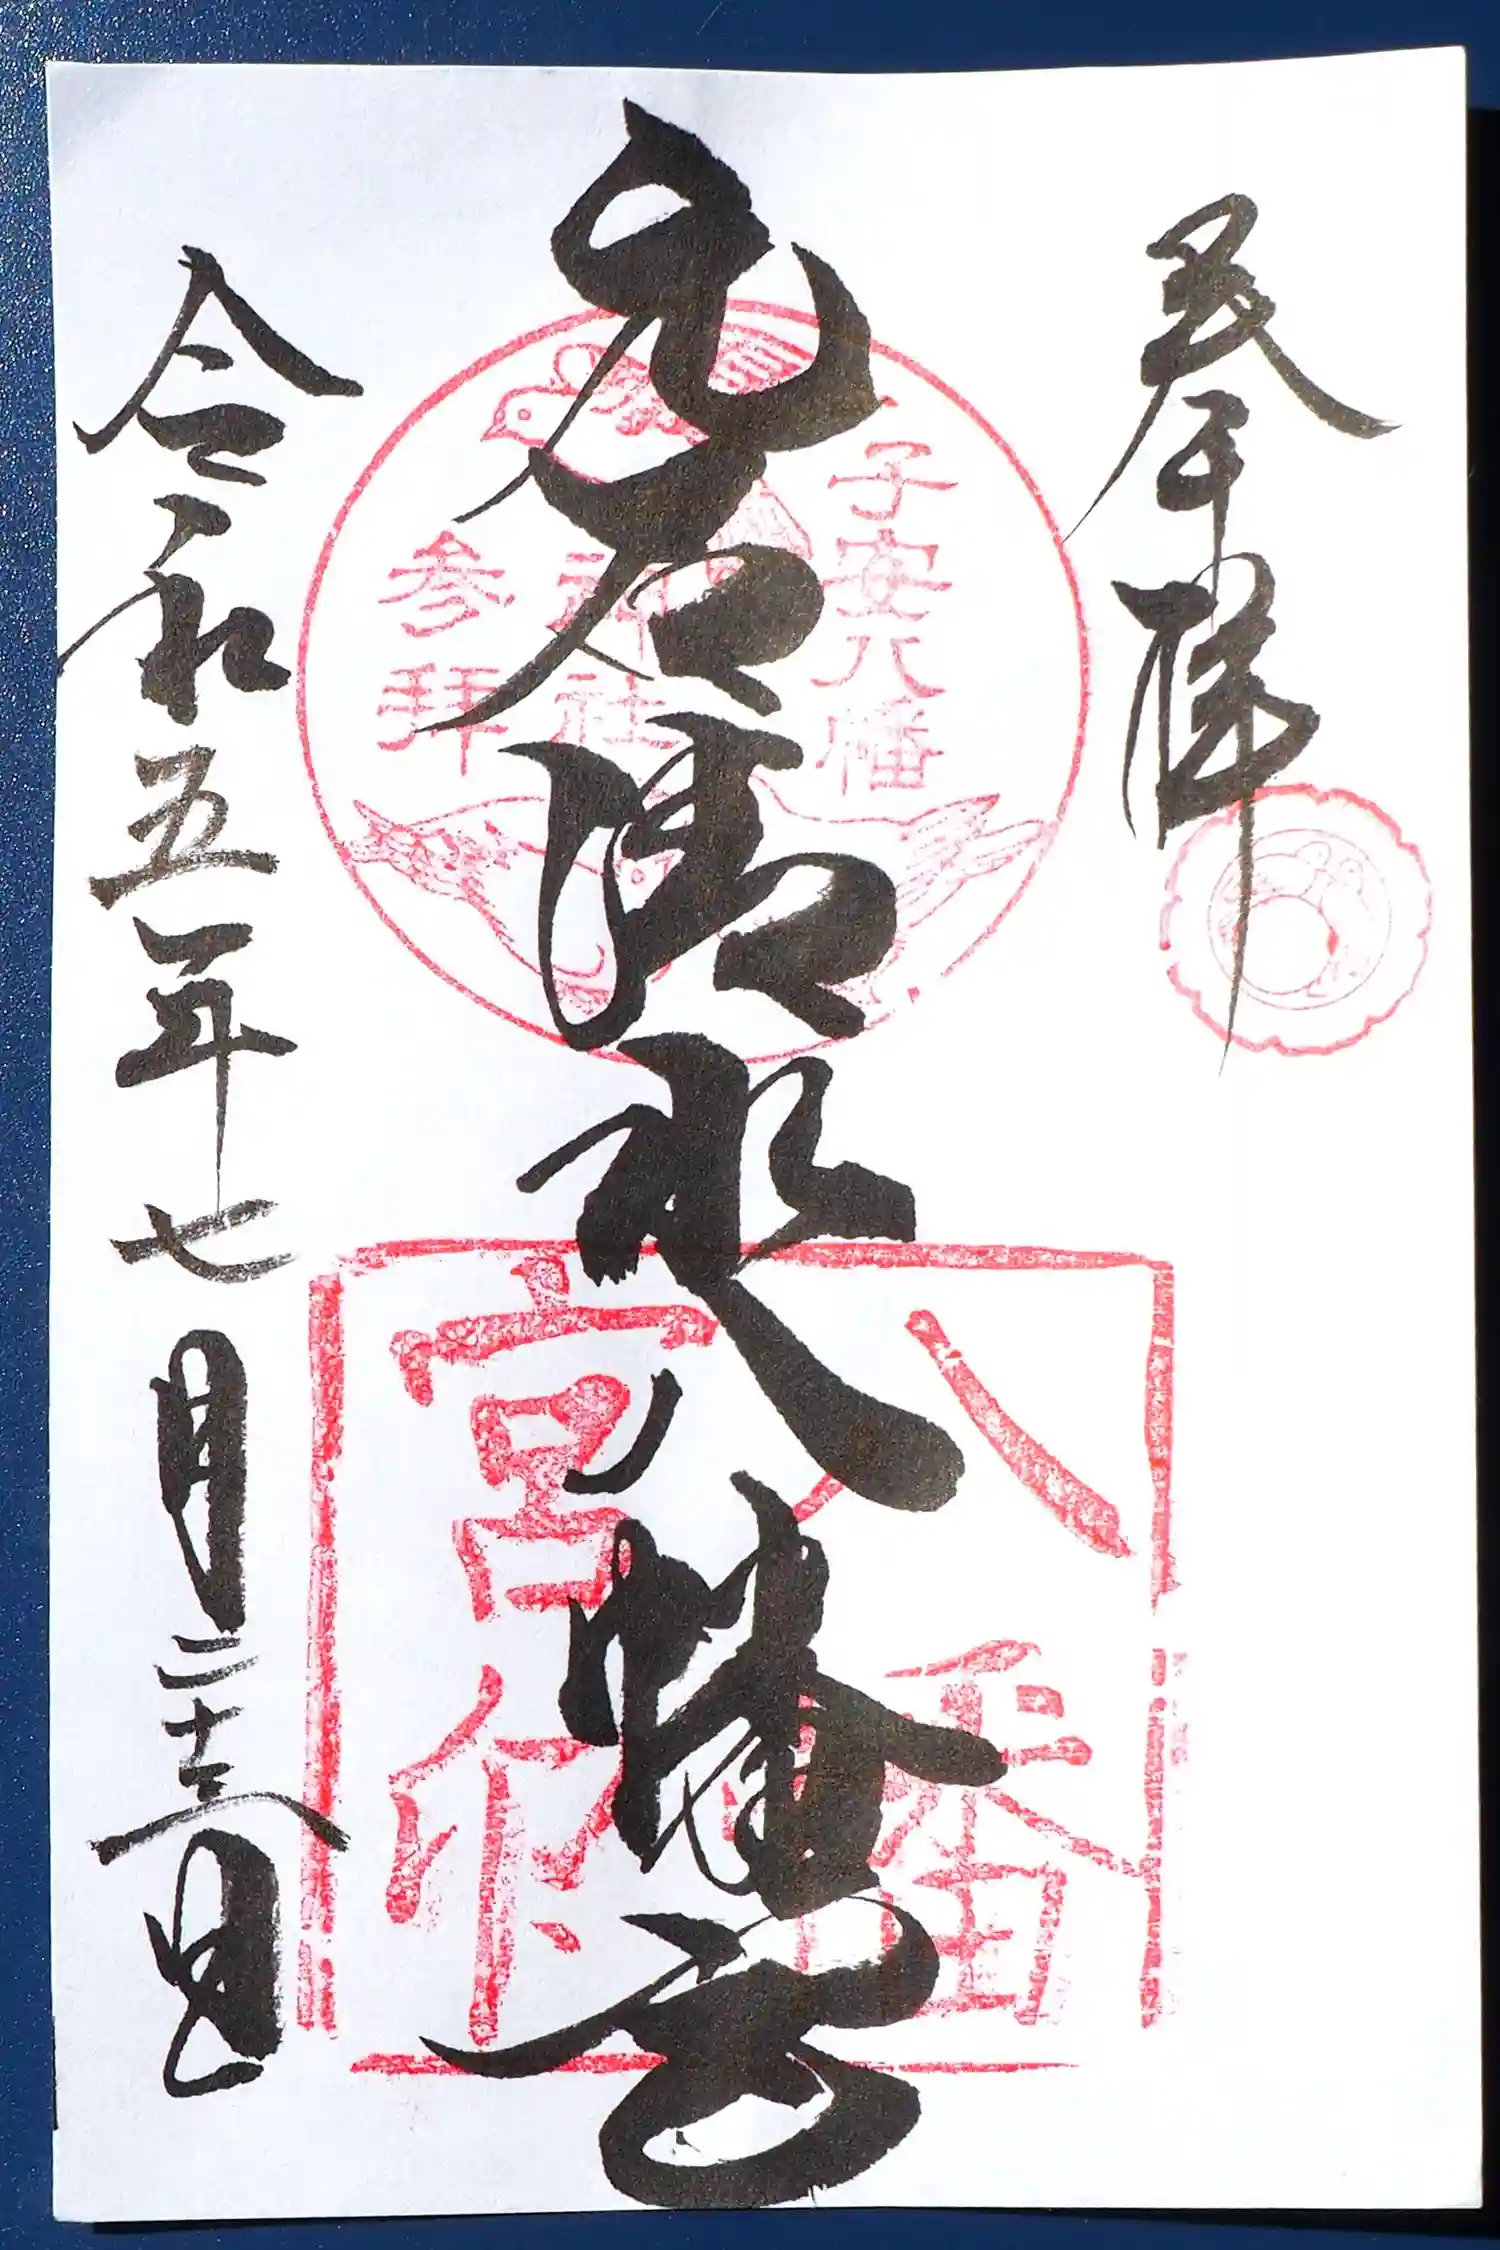 奉拝
元石清水八幡宮
子安八幡
神社
参拝
八幡
宮印
令和五年七月二十三日